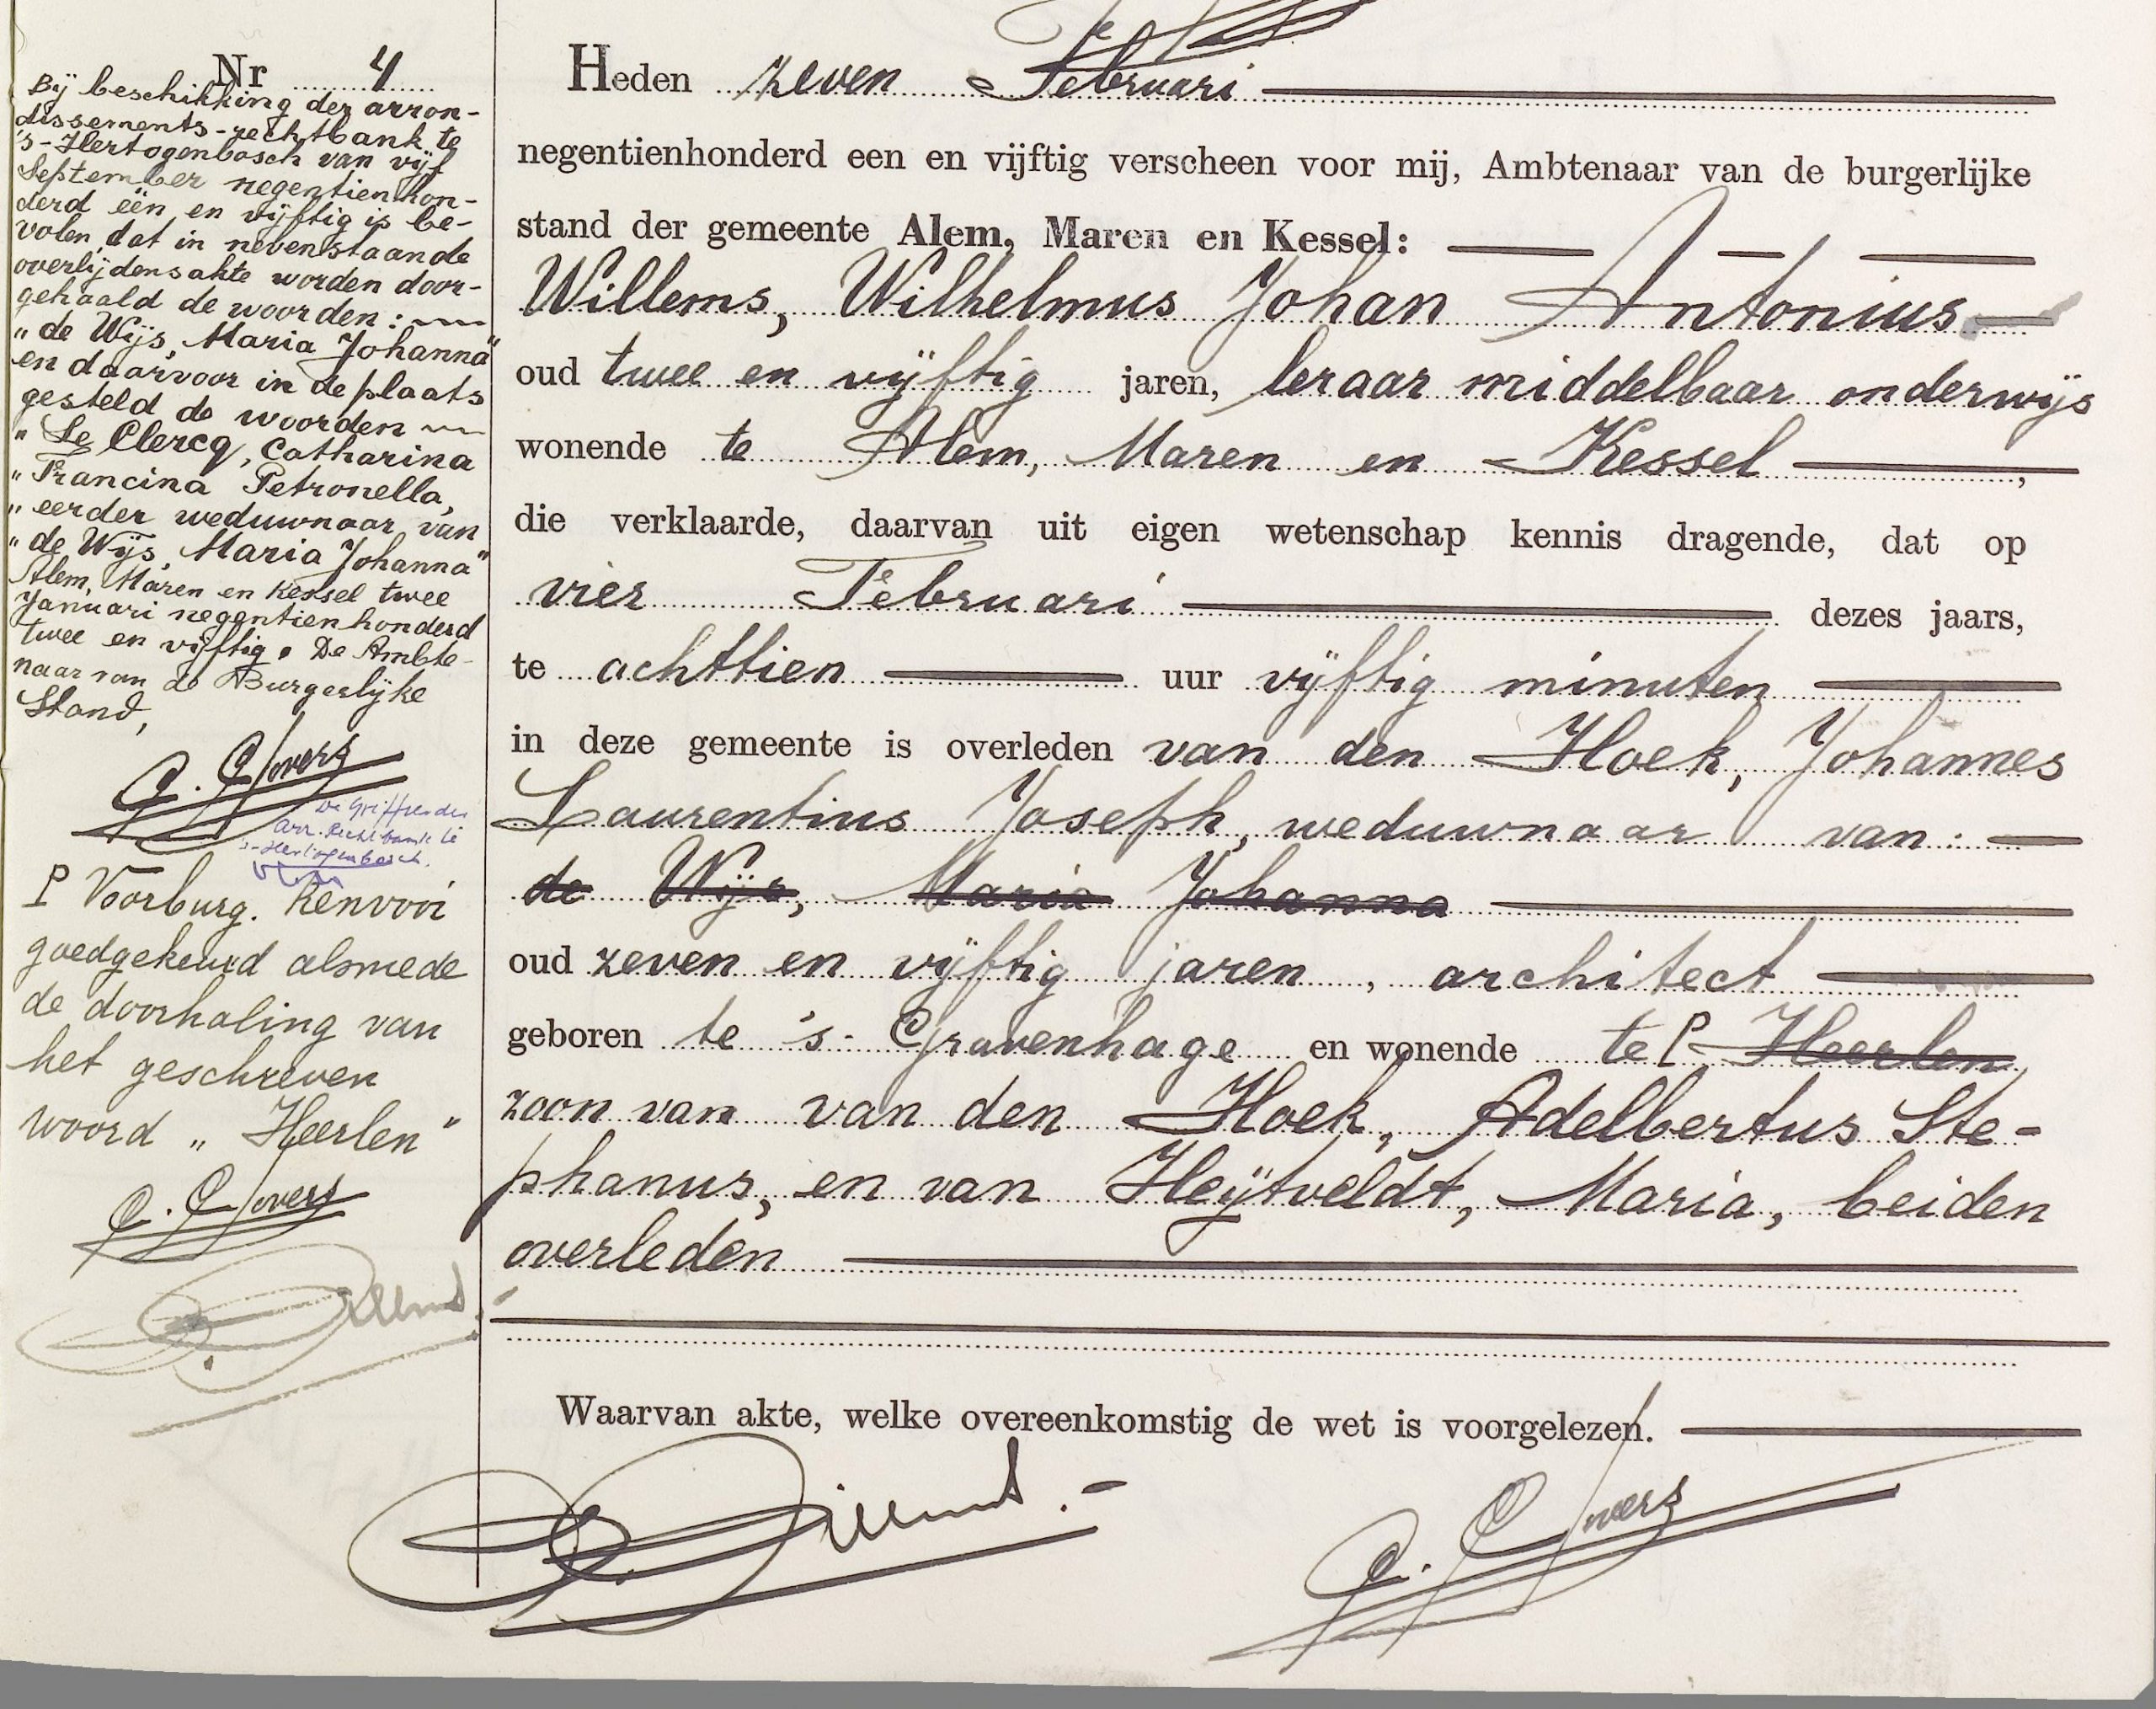 Nr 4
Bij beschikking der arron-
dissements-rechtbank te
's-Hertogenbosch van vijf
September negentienhon-
derd één en vijftig is be-
volen, dat in nevenstaande
overlijdensakte worden door-
gehaald de woorden:
"de Wijs, Maria Johanna"
en daarvoor in de plaats
gesteld de woorden
"Le Clercq, Catharina
"Francina Petronella,
"eerder weduwnaar van
"de Wijs, Maria Johanna"
Alem, Maren en Kessel twee
Januari negentienhonderd
twee en vijftig. De Ambte-
naar van de Burgerlijke
Stand,
De Griffier der
Arr. Rechtbank te
's-Hertogenbosch.
Voorburg. Renvooi
goedgekeurd alsmede
de doorhaling van
het geschreven
woord „Heerlen"
Heden zeven Februari
negentienhonderd een en vijftig verscheen voor mij, Ambtenaar van de burgerlijke
stand der gemeente Alem, Maren en Kessel:
Willems, Wilhelmus Johan Antonius
oud twee en vijftig jaren, leraar middelbaar onderwijs
wonende te Alem, Maren en Kessel,
die verklaarde, daarvan uit eigen wetenschap kennis dragende, dat op
vier Februari dezes jaars,
te achttien uur vijftig minuten
in deze gemeente is overleden van den Hoek, Johannes
Laurentius Joseph, weduwnaar van:
de Wijs, Maria Johanna
oud zeven en vijftig jaren, architect
geboren te 's-Gravenhage en wonende te Heerlen,
zoon van van den Hoek, Adelbertus Ste-
phanus, en van Heijtveldt, Maria, beiden
overleden
Waarvan akte, welke overeenkomstig de wet is voorgelezen.